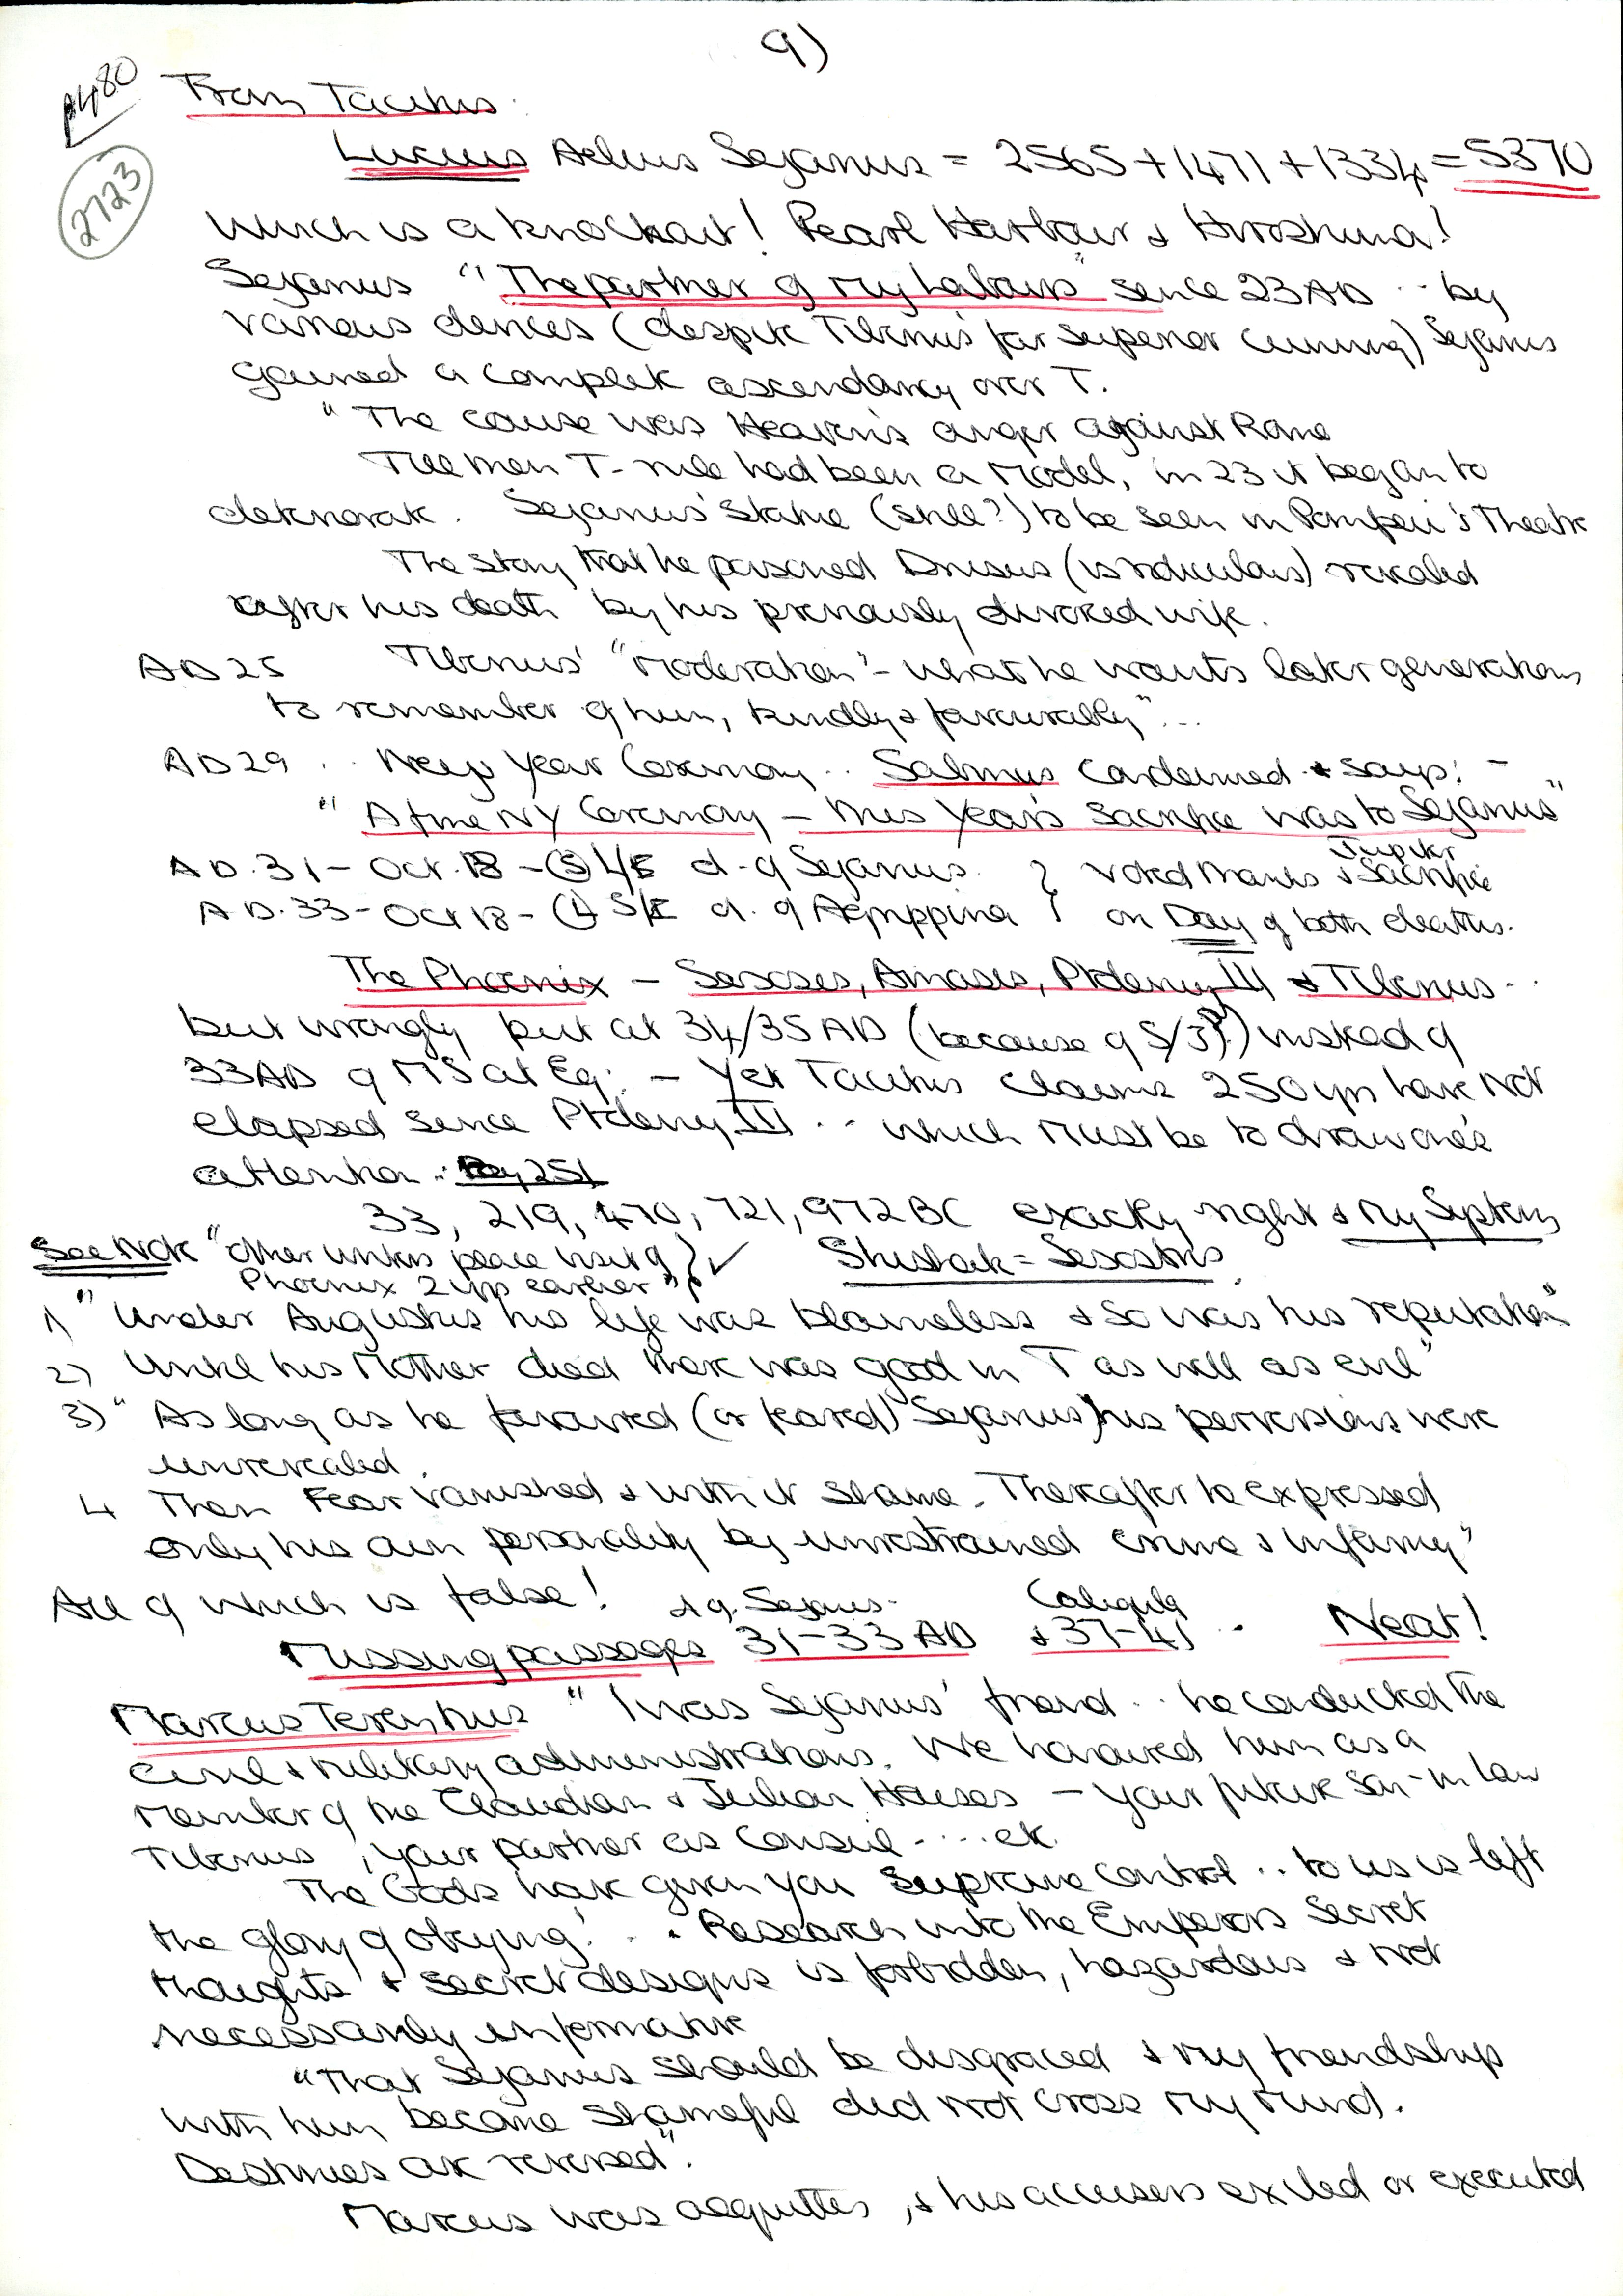 9)
2723
From Tacitus
Lucius Aelius Sejanus = 2565 + 1471 + 1334 = 5370
Which is a knockout! Pearl Harbour & Hiroshima!
Sejanus "The partner of my labours" since 23 AD .. by
various devices (despite Tiberius' far superior cunning) Sejanus
gained a complete ascendancy over T.
"The cause was Heaven's anger against Rome
Till then T- rule had been a Model, in 23 it began to
deteriorate. Sejanus' Statue (still?) to be seen in Pompeii's Theatre
The story that he poisoned Drusus (is ridiculous) revealed
after his death by his previously divorced wife.
AD 25 Tiberius' "Moderation" - what he wants later generations
to remember of him, kindly & favourably"...
AD 29 .. New Year Ceremony .. Sabinus Condemned & says: -
"A fine NY Ceremony - this Year's Sacrifice was to Sejanus"
AD. 31 - Oct. 18 - (3) 4/E d. of Sejanus } Voted thanks & Jupiter Sacrifice
AD. 33 - Oct 18 - (1) S/E d. of Agrippina } on Day of both deaths.
The Phoenix - Sesoses, Amasis, Ptolemy III & Tiberius ..
but wrongly put at 34/35 AD (because of S/3?) instead of
33AD of MS at Eq: - Yet Tacitus claims 250 yrs have Not
elapsed since Ptolemy III .. which Must be to draw one's
attention ..
33, 219, 470, 721, 972 BC exactly right & My System
See Note "other writers place visit of } ✓ Shishak = Sesostris
Phoenix 2 yrs earlier"
1) "Under Augustus his life was blameless & so was his reputation"
2) Until his Mother died there was good in T as well as evil"
3) "As long as he favoured (or feared) Sejanus) his perversions were
unrevealed.
4 Then Fear vanished & with it shame. Thereafter he expressed
only his own personality by unrestrained crime & infamy"
All of which is false! d of. Sejanus. Caligula
Missing passages 31-33 AD & 37-41 . Neat!
Marcus Terentius "I was Sejanus' friend .. he conducted the
civil & military administrations. We honoured him as a
Member of the Claudian & Julian Houses - your future Son-in law
Tiberius, your partner as Consul .... etc.
The Gods have given you supreme control .. to us is left
the glory of obeying! .. Research into the Emperors secret
thoughts & secret designs is forbidden, hazardous & not
necessarily informative
"That Sejanus should be disgraced & my friendship
with him become shameful did not cross my Mind.
Destinies are reversed".
Marcus was acquitted, & his accusers exiled or executed